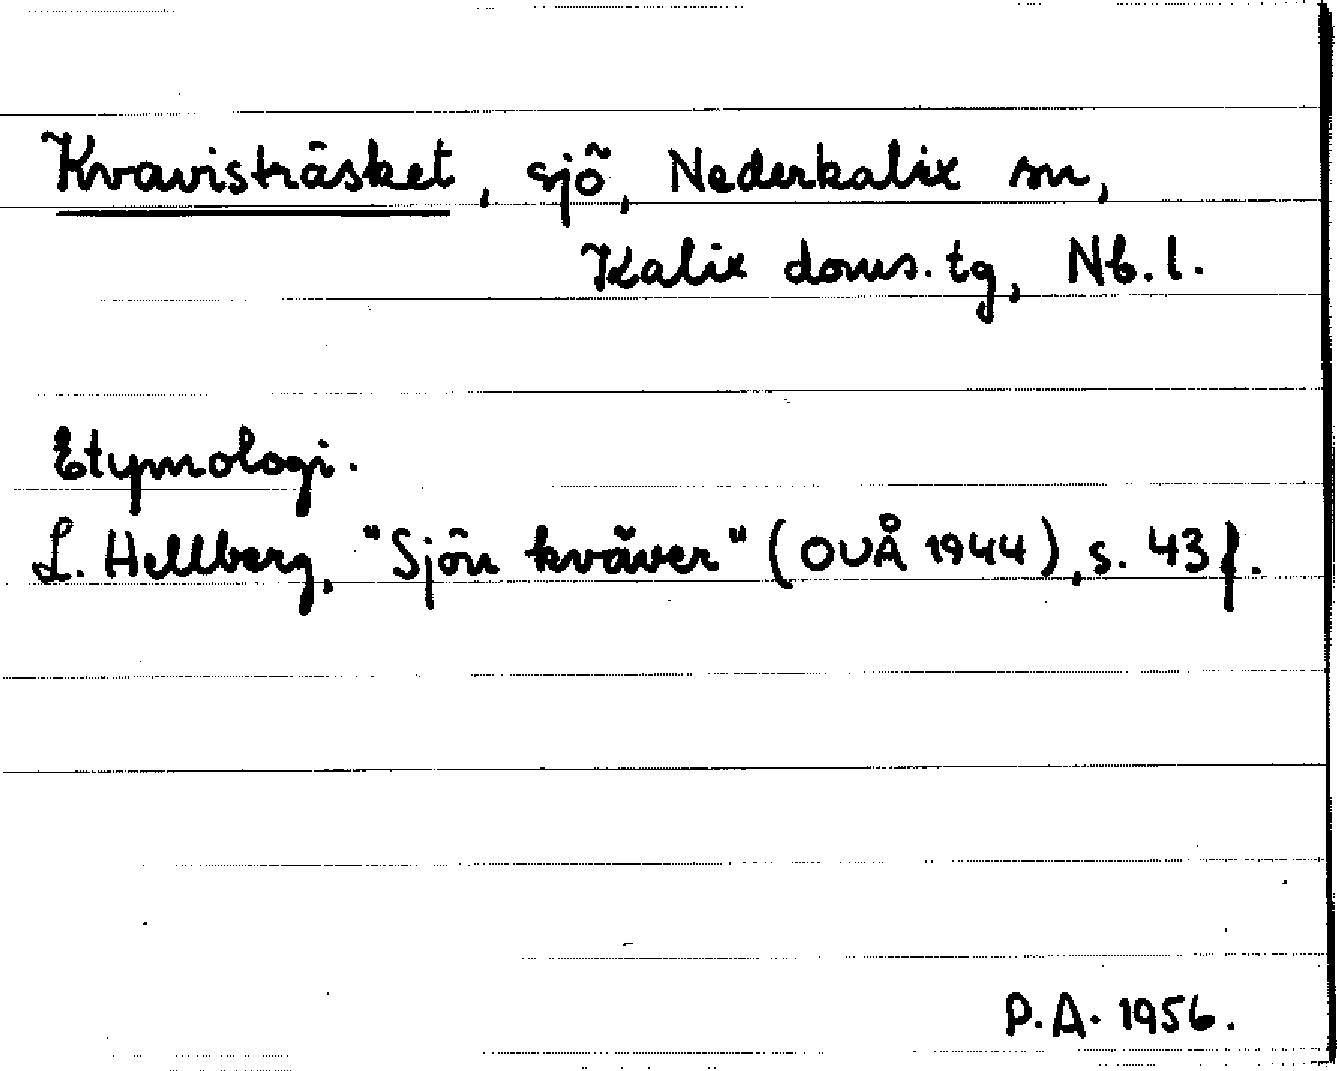 Kvavisträsket, sjö, Nederkalix sn,
Kalix doms.tg, Nb. l.
Etymologi.
L. Hellberg, "Sjön kväver" (OUÅ 1944), s. 43 f.
P.A. 1956.